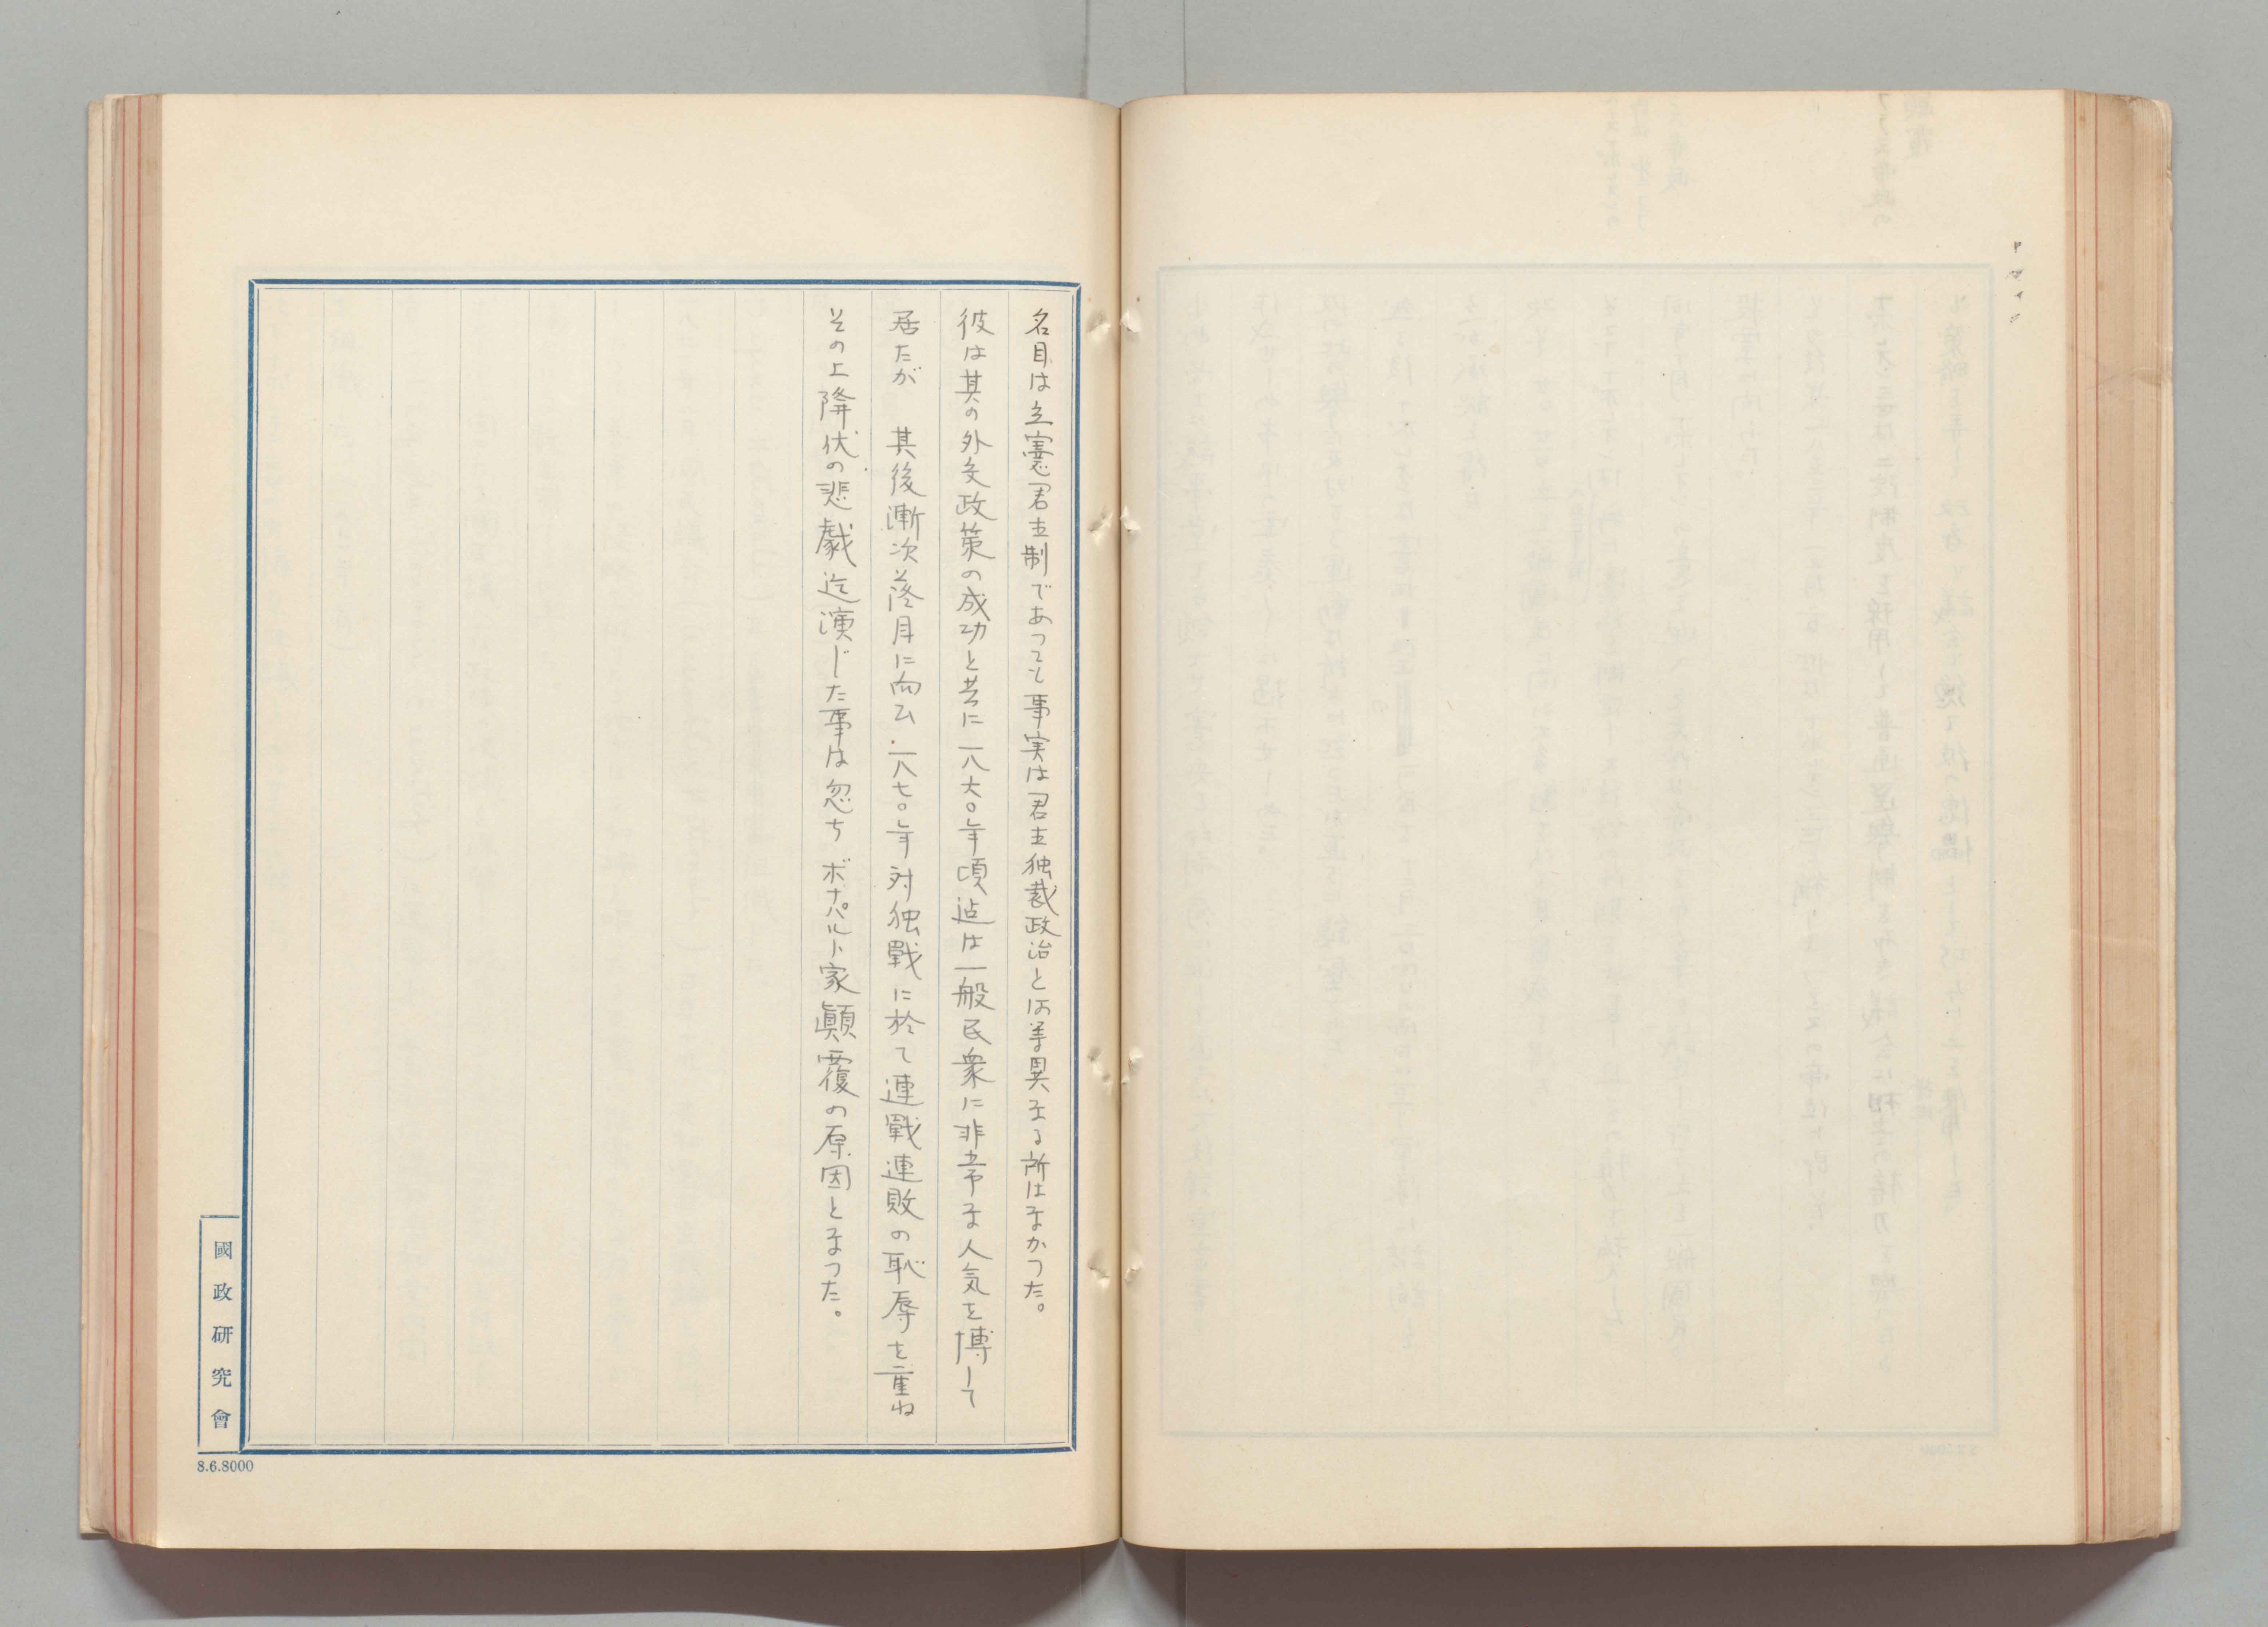 名目は立憲君主制であっても事実は君主独裁政治と何等異なる所はなかつた。
彼は其の外交政策の成功と共に一八六〇年頃迄は一般民衆に非常な人気を博して
居たが 其後漸次落目に向ひ 一八七〇年対独戰に於て連戰連敗の恥辱を重ね
その上降伏の悲戯迄演じた事は忽ちボナパルト家顚覆の原因となつた。
國政研究會
8.6.8000